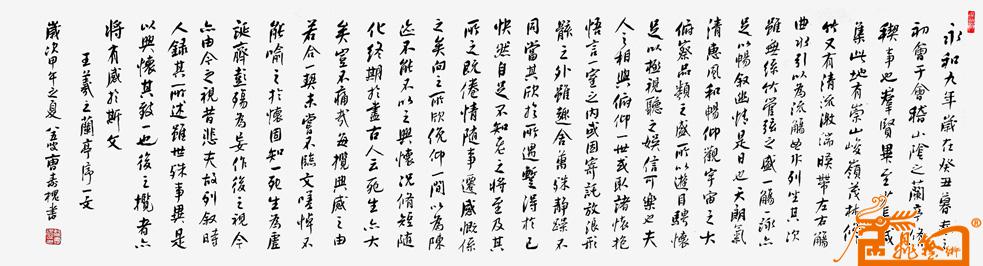 永和九年歲在癸丑暮春之
初會于會稽山陰之蘭亭脩
禊事也羣賢畢至少長咸
集此地有崇山峻嶺茂林脩
竹又有清流激湍暎帶左右觴
曲水引以為流觴曲水列坐其次
雖無絲竹管弦之盛一觴一詠亦
足以暢敘幽情是日也天朗氣
清惠風和暢仰觀宇宙之大
俯察品類之盛所以遊目騁懷
足以極視聽之娛信可樂也夫
人之相與俯仰一世或取諸懷抱
悟言一室之内或因寄託放浪形
骸之外雖趣舍萬殊静躁不
同當其欣於所遇蹔得於己
快然自足不知老之將至及其
所之既倦情隨事遷感慨係
之矣向之所欣俛仰之間以為陳
迹不能不以之興懷況脩短隨
化終期於盡古人云死生亦大
矣豈不痛哉每攬興感之由
若合一契未嘗不臨文嗟悼不
能喻之於懷固知一死生為虛
誕齊彭殤為妄作後之視今
亦由今之視昔悲夫故列敘時
人錄其所述雖世殊事異是
以興懷其致一也後之攬者亦
將有感於斯文
王羲之蘭亭序一文
歲次甲午之夏 曹壽槐書